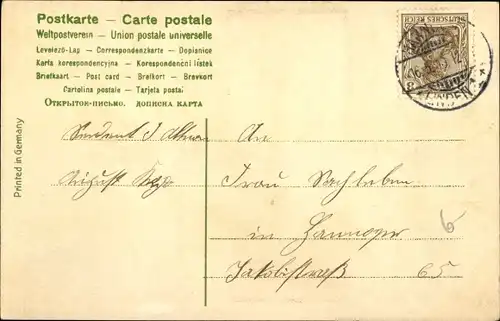 Postkarte – Carte postale
Weltpostverein – Union postale universelle
Levelező-Lap – Correspondenzkarte – Dopisnice
Karta korespondencyjna – Korespondenční lístek
Briefkaart – Post card – Brefkort – Brevkort
Cartolina postale – Tarjeta postal
Открытое-письмо. дописна карта
Printed in Germany
DEUTSCHES REICH
An
Frau Sachleben
in Hannover
Jakobistraß 65
6